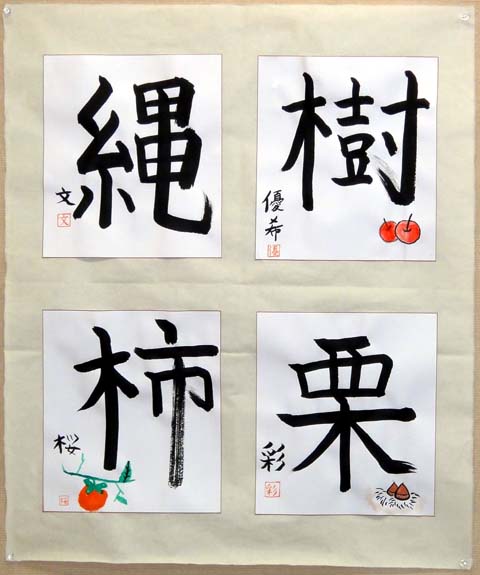 縄
文
文
樹
優希
優
柿
桜
栗
彩
彩